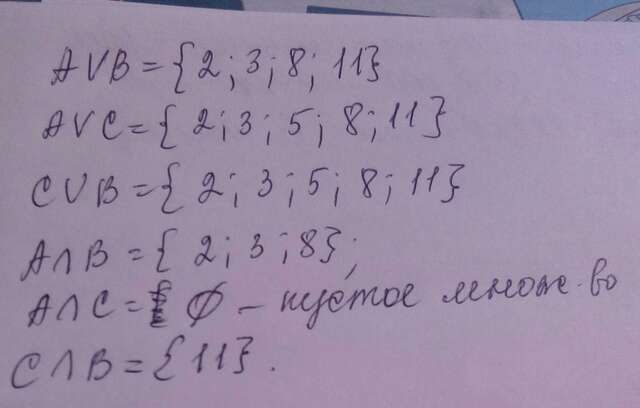 A∪B={2; 3; 8; 11}
A∪C={2; 3; 5; 8; 11}
C∪B={2; 3; 5; 8; 11}
A∩B={2; 3; 8};
A∩C= ∅ – пустое множ-во
C∩B={11}.